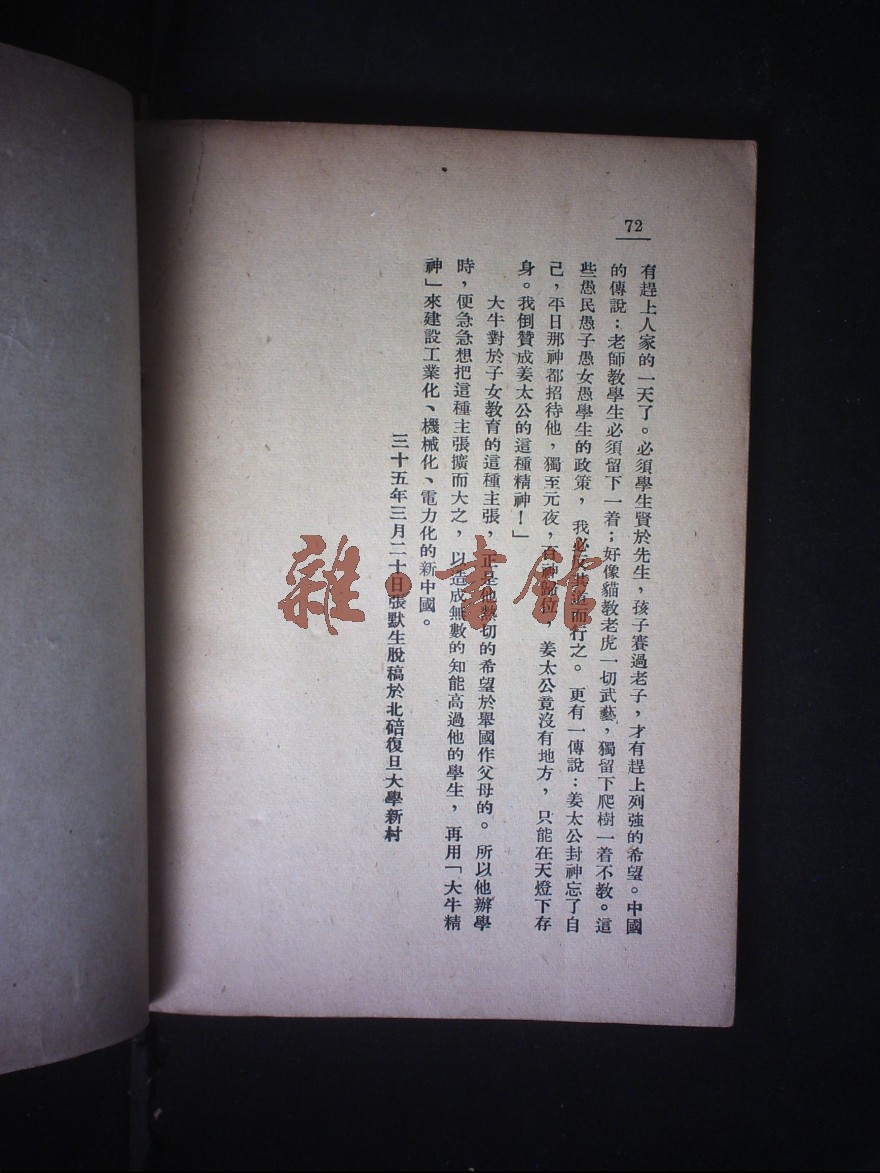 72
有趕上人家的一天了。必須學生賢於先生，孩子賽過老子，才有趕上列強的希望。中國
的傳說：老師教學生必須留下一着；好像貓教老虎一切武藝，獨留下爬樹一着不教。這
些愚民愚子愚女愚學生的政策，我必反其道而行之。更有一傳說：姜太公封神忘了自
己，平日那神都招待他，獨至元夜，百神歸位，姜太公竟沒有地方，只能在天燈下存
身。我倒贊成姜太公的這種精神！」
大牛對於子女教育的這種主張，正是他熱切的希望於舉國作父母的。所以他辦學
時，便急急想把這種主張擴而大之，以造成無數的知能高過他的學生，再用「大牛精
神」來建設工業化、機械化、電力化的新中國。
三十五年三月二十日張默生脫稿於北碚復旦大學新村
雜·書館